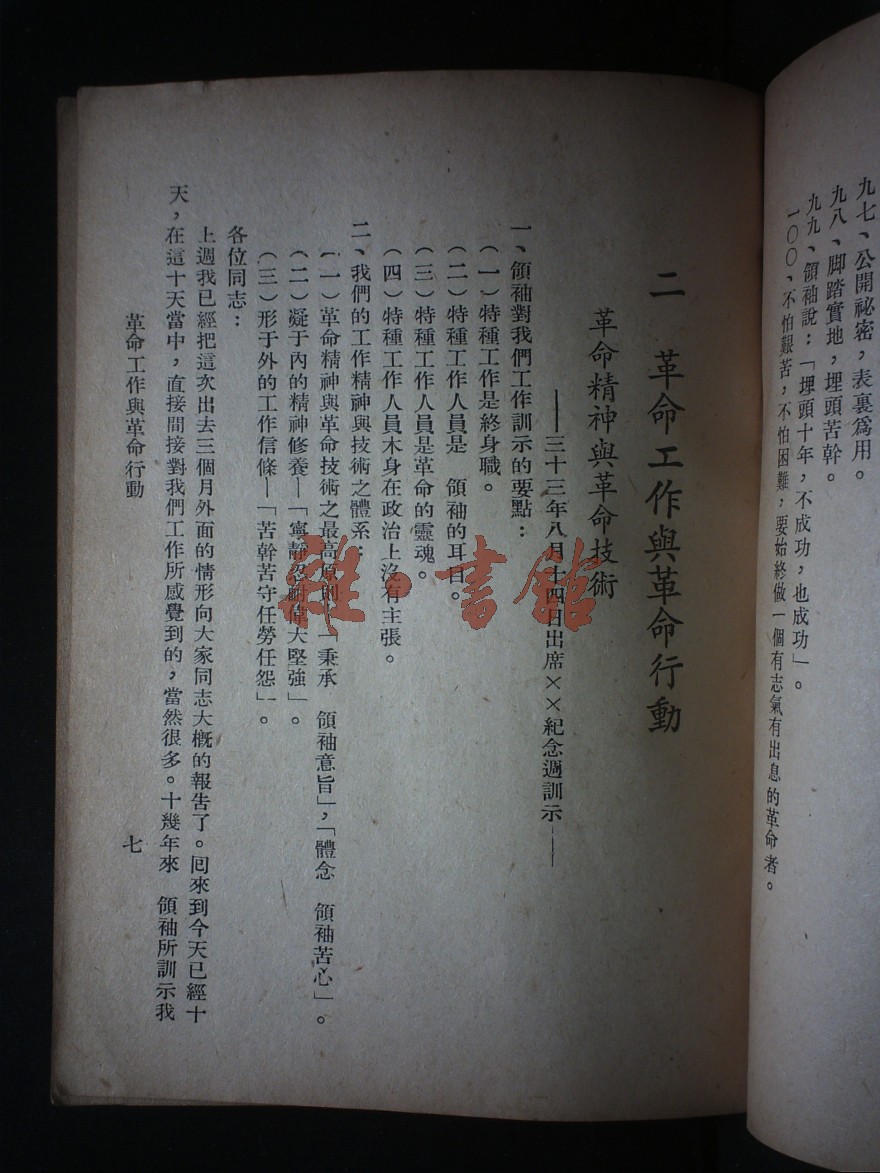 九七、公開祕密，表裏爲用。
九八、脚踏實地，埋頭苦幹。
九九、領袖說：「埋頭十年，不成功，也成功」。
一〇〇、不怕艱苦，不怕困難，要始終做一個有志氣有出息的革命者。
二　革命工作與革命行動
革命精神與革命技術
——三十三年八月十四日出席××紀念週訓示——
一、領袖對我們工作訓示的要點：
（一）特種工作是終身職。
（二）特種工作人員是　領袖的耳目。
（三）特種工作人員是革命的靈魂。
（四）特種工作人員本身在政治上沒有主張。
二、我們的工作精神與技術之體系：
（一）革命精神與革命技術之最高原則—「秉承　領袖意旨」，「體念　領袖苦心」。
（二）凝于內的精神修養—「寧靜忍耐偉大堅強」。
（三）形于外的工作信條—「苦幹苦守任勞任怨」。
各位同志：
上週我已經把這次出去三個月外面的情形向大家同志大概的報告了。囘來到今天已經十
天，在這十天當中，直接間接對我們工作所感覺到的，當然很多。十幾年來　領袖所訓示我
革命工作與革命行動
七
雜·書館